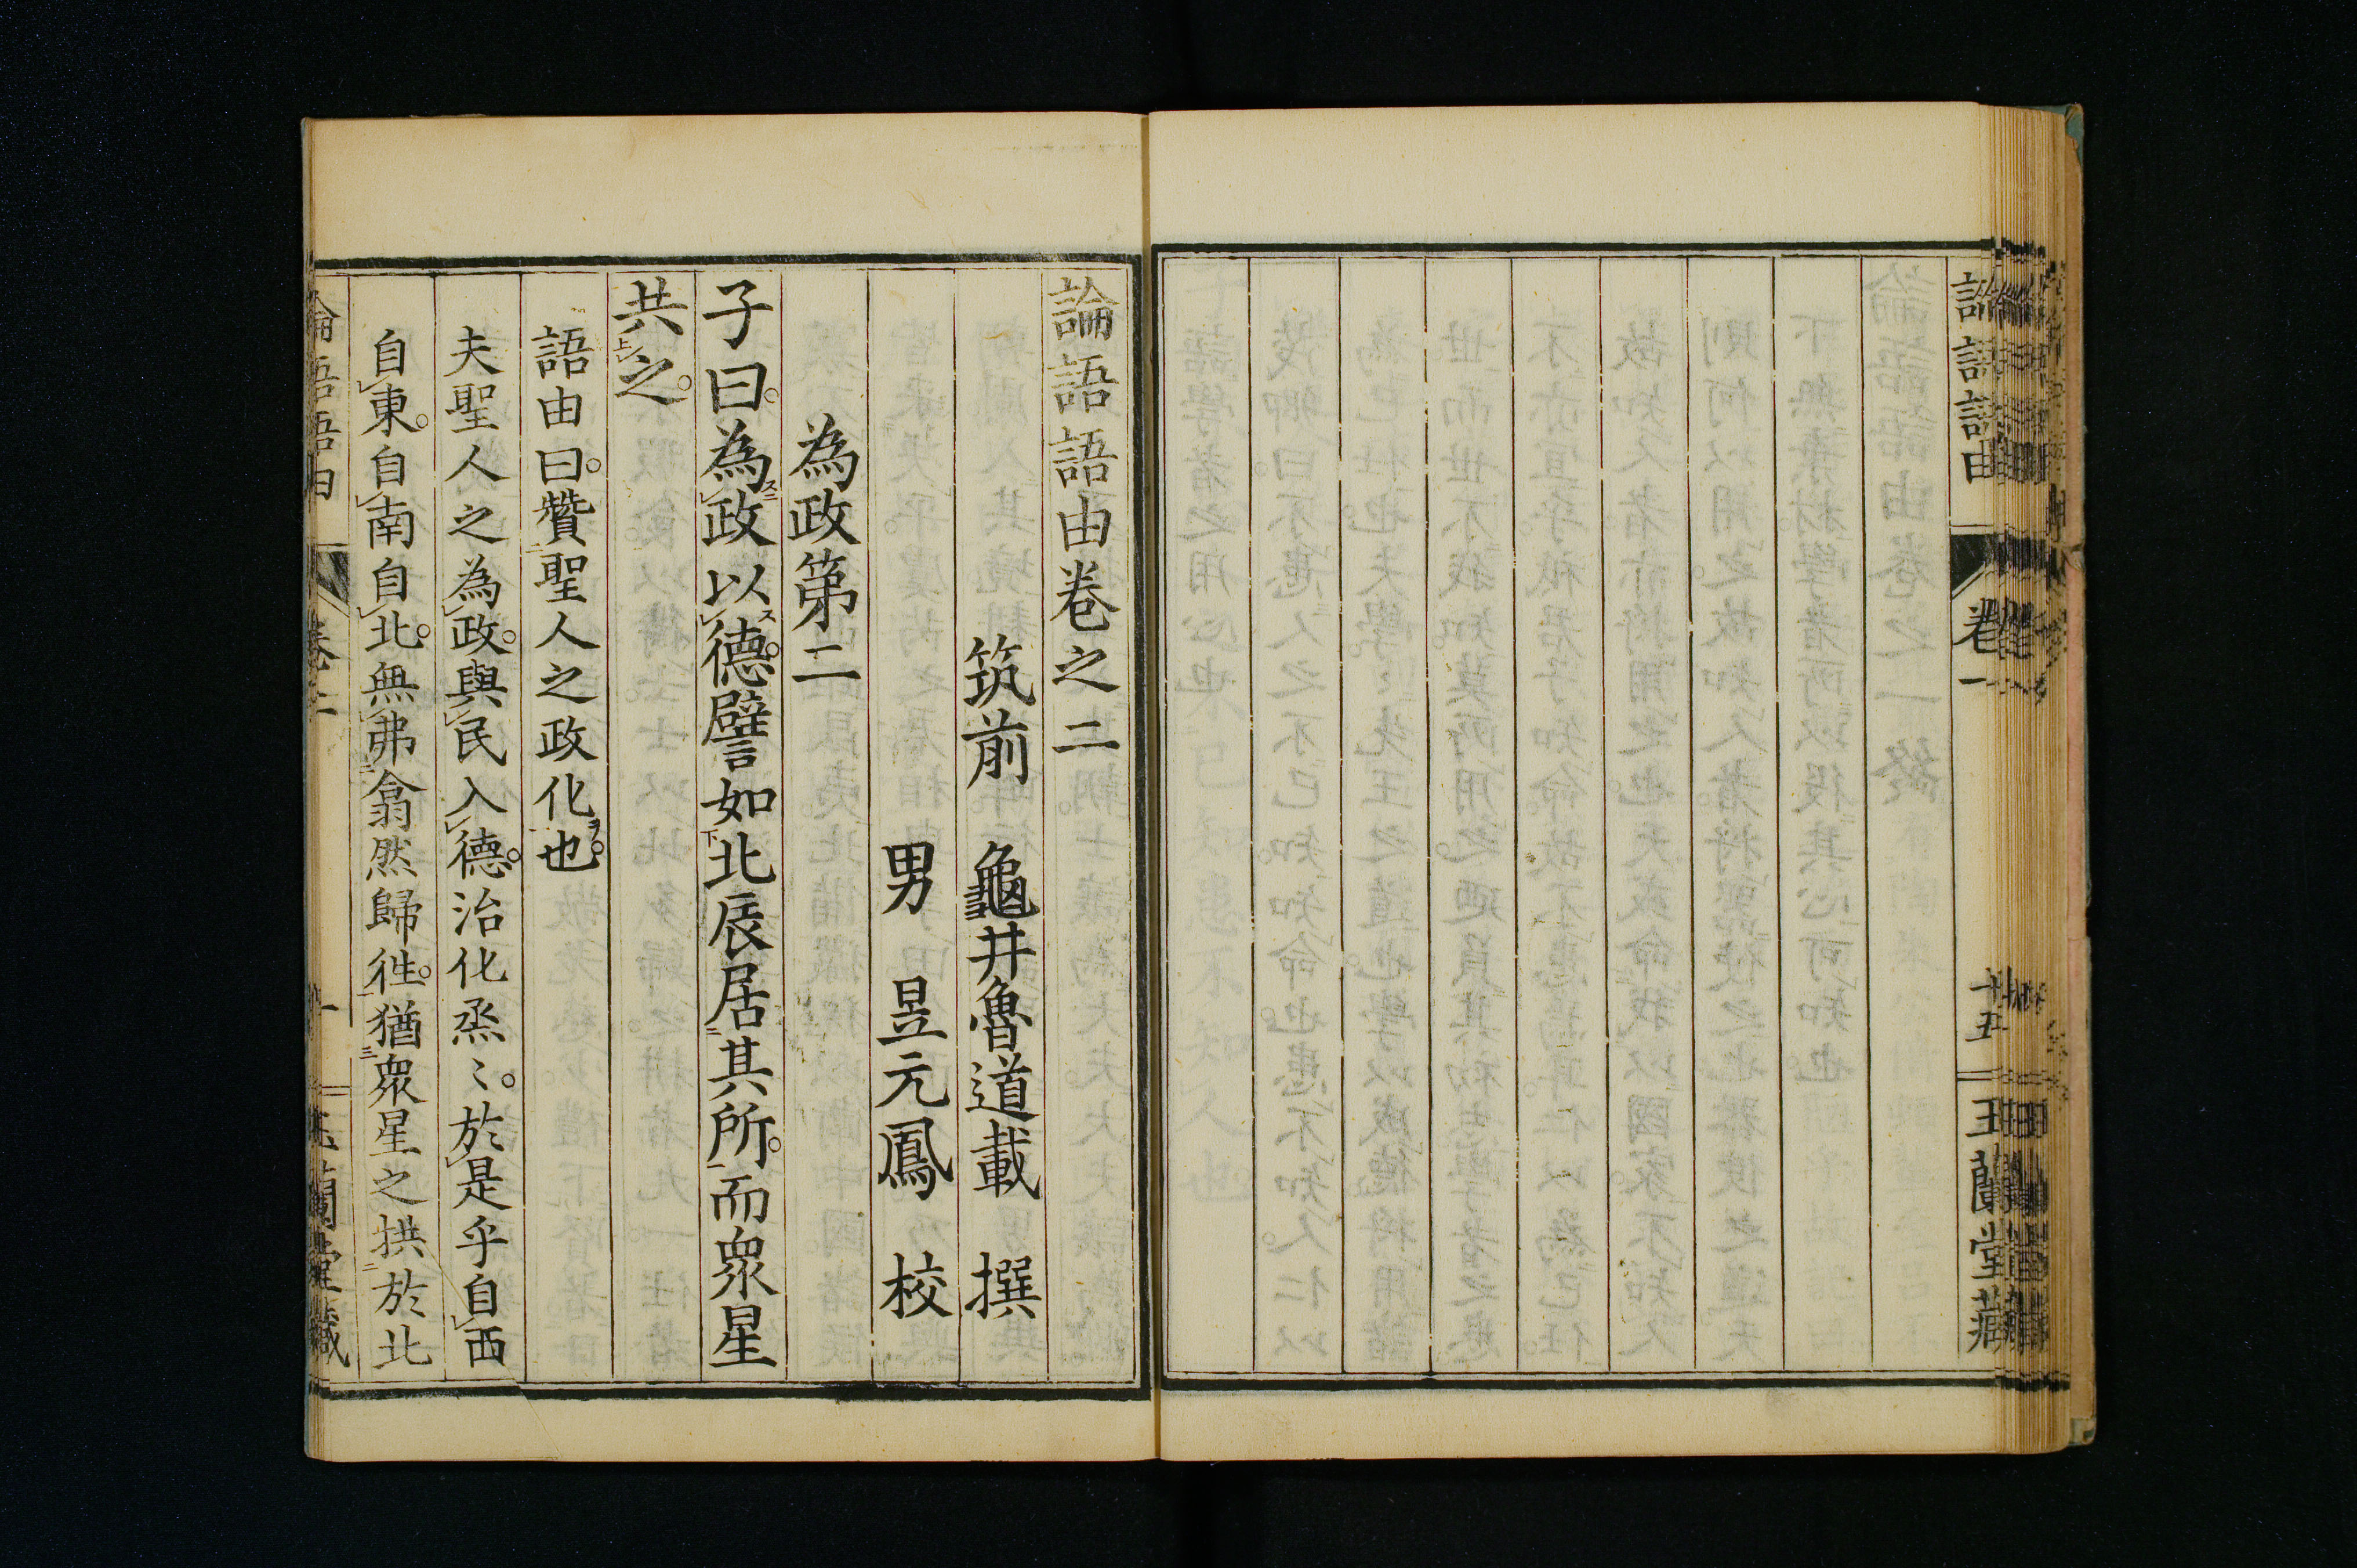 論語語由
卷一
廿五
玉蘭堂藏
論語語由卷之二
筑前 龜井魯道載 撰
男 昱元鳳 校
為政第二
子曰。為政以德。譬如北辰居其所。而眾星
共之。
語由曰。贊聖人之政化也。
夫聖人之為政。與民入德。治化烝〻。於是乎自西
自東。自南自北。無弗翕然歸徃。猶眾星之拱於北
論語語由
卷二
一
玉蘭堂藏